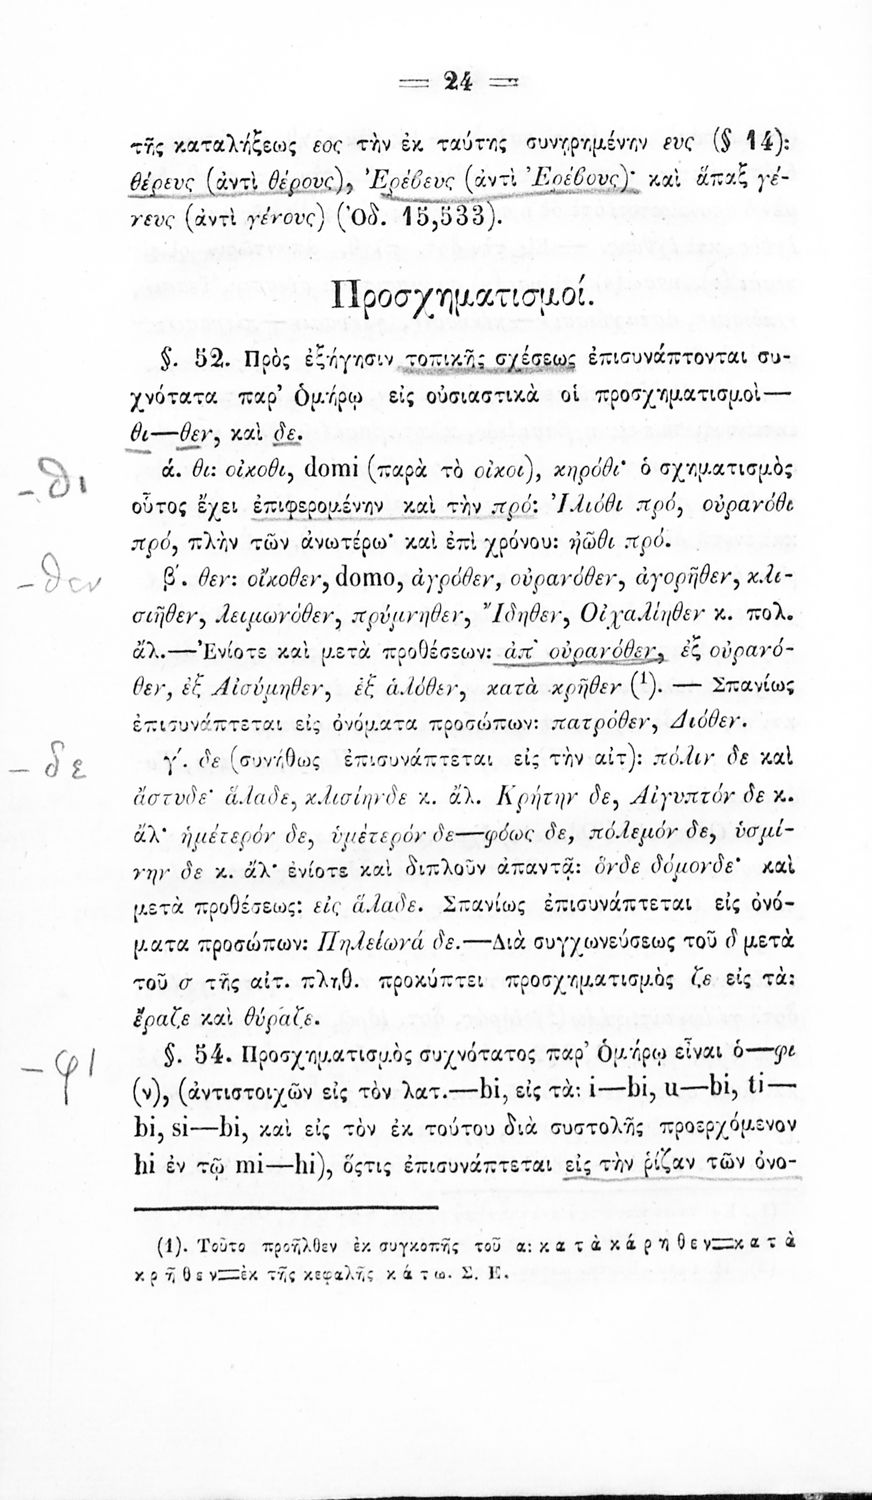 = 24 =
τῆς καταλήξεως εος τὴν ἐκ ταύτης συνῃρημένην ευς (§ 14):
θέρευς (ἀντὶ θέρους), Ἐρέβευς (ἀντὶ Ἐρέβους)· καὶ ἅπαξ γέ-
νευς (ἀντὶ γένους) (Ὀδ. 15,533).
Προσχηματισμοί.
§. 52. Πρὸς ἐξήγησιν τοπικῆς σχέσεως ἐπισυνάπτονται συ-
χνότατα παρ’ Ὁμήρῳ εἰς οὐσιαστικὰ οἱ προσχηματισμοὶ—
θι—θεν, καὶ δε.
ά. θι: οἰκοθι, domi (παρὰ τὸ οἰκοι), κηρόθι· ὁ σχηματισμὸς
-θι
οὗτος ἔχει ἐπιφερομένην καὶ τὴν πρό: Ἰλιόθι πρό, οὐρανόθι
πρό, πλὴν τῶν ἀνωτέρω· καὶ ἐπὶ χρόνου: ἠῶθι πρό.
β΄. θεν: οἴκοθεν, domo, ἀγρόθεν, οὐρανόθεν, ἀγορῆθεν, κλι-
-θεν
σιῆθεν, λειμωνόθεν, πρύμνηθεν, Ἴδηθεν, Οἰχαλίηθεν κ. πολ.
ἄλ.—Ἐνίοτε καὶ μετὰ προθέσεων: ἀπ’ οὐρανόθεν, ἐξ οὐρανό-
θεν, ἐξ Αἰσύμηθεν, ἐξ ἁλόθεν, κατὰ κρῆθεν (1). — Σπανίως
ἐπισυνάπτεται εἰς ὀνόματα προσώπων: πατρόθεν, Διόθεν.
γ΄. δε (συνήθως ἐπισυνάπτεται εἰς τὴν αἰτ): πόλιν δε καὶ
-δε
ἄστυδε· ἅλαδε, κλισίηνδε κ. ἄλ. Κρήτην δε, Αἰγυπτόν δε κ.
ἄλ· ἡμέτερόν δε, ὑμέτερόν δε—φόως δε, πόλεμόν δε, ὑσμί-
νην δε κ. ἄλ· ἐνίοτε καὶ διπλοῦν ἀπαντᾷ: ὅνδε δόμονδε· καὶ
μετὰ προθέσεως: εἰς ἅλαδε. Σπανίως ἐπισυνάπτεται εἰς ὀνό-
ματα προσώπων: Πηλείωνά δε.—Διὰ συγχωνεύσεως τοῦ δ μετὰ
τοῦ σ τῆς αἰτ. πληθ. προκύπτει προσχηματισμὸς ζε εἰς τὰ:
ἔραζε καὶ θύραζε.
§. 54. Προσχηματισμὸς συχνότατος παρ’ Ὁμήρῳ εἶναι ὁ—φι
-φι
(ν), (ἀντιστοιχῶν εἰς τὸν λατ.—bi, εἰς τὰ: i—bi, u—bi, ti—
bi, si—bi, καὶ εἰς τὸν ἐκ τούτου διὰ συστολῆς προερχόμενον
hi ἐν τῷ mi—hi), ὅςτις ἐπισυνάπτεται εἰς τὴν ῥίζαν τῶν ὀνο-
(1). Τοῦτο προῆλθεν ἐκ συγκοπῆς τοῦ α: κατὰ κάρηθεν=κατὰ
κρῆθεν=ἐκ τῆς κεφαλῆς κάτω. Σ. Ε.